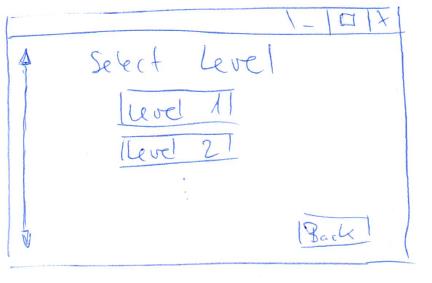 Select Level
Level 1
Level 2
Back